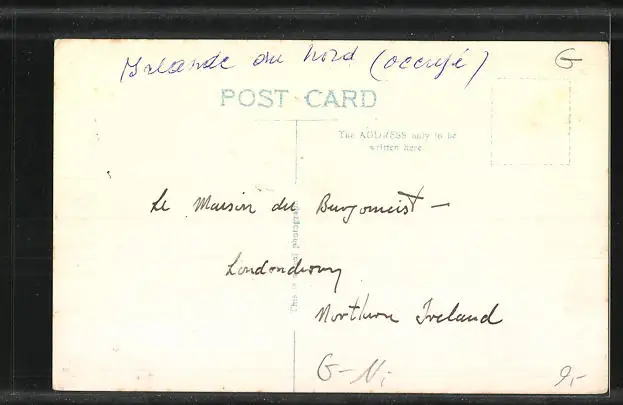 Irlande du Nord (occupé)
G
POST CARD
The ADDRESS only to be
written here.
Le Maison du Burgomeist —
This is a real photograph
Londonderry
Northern Ireland
G-Ni
9,-